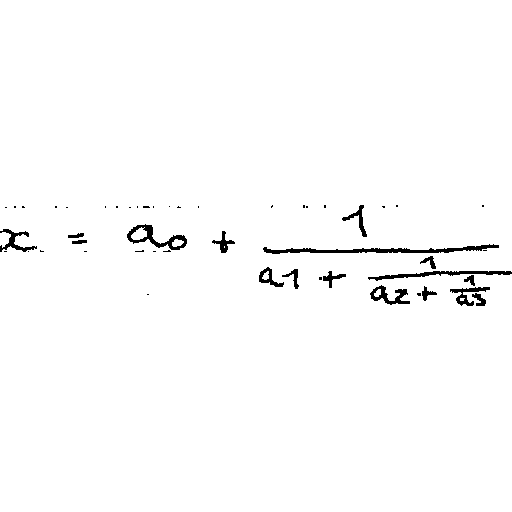 x = a0 + \frac{1}{a1 + \frac{1}{a2 + \frac{1}{a3}}}